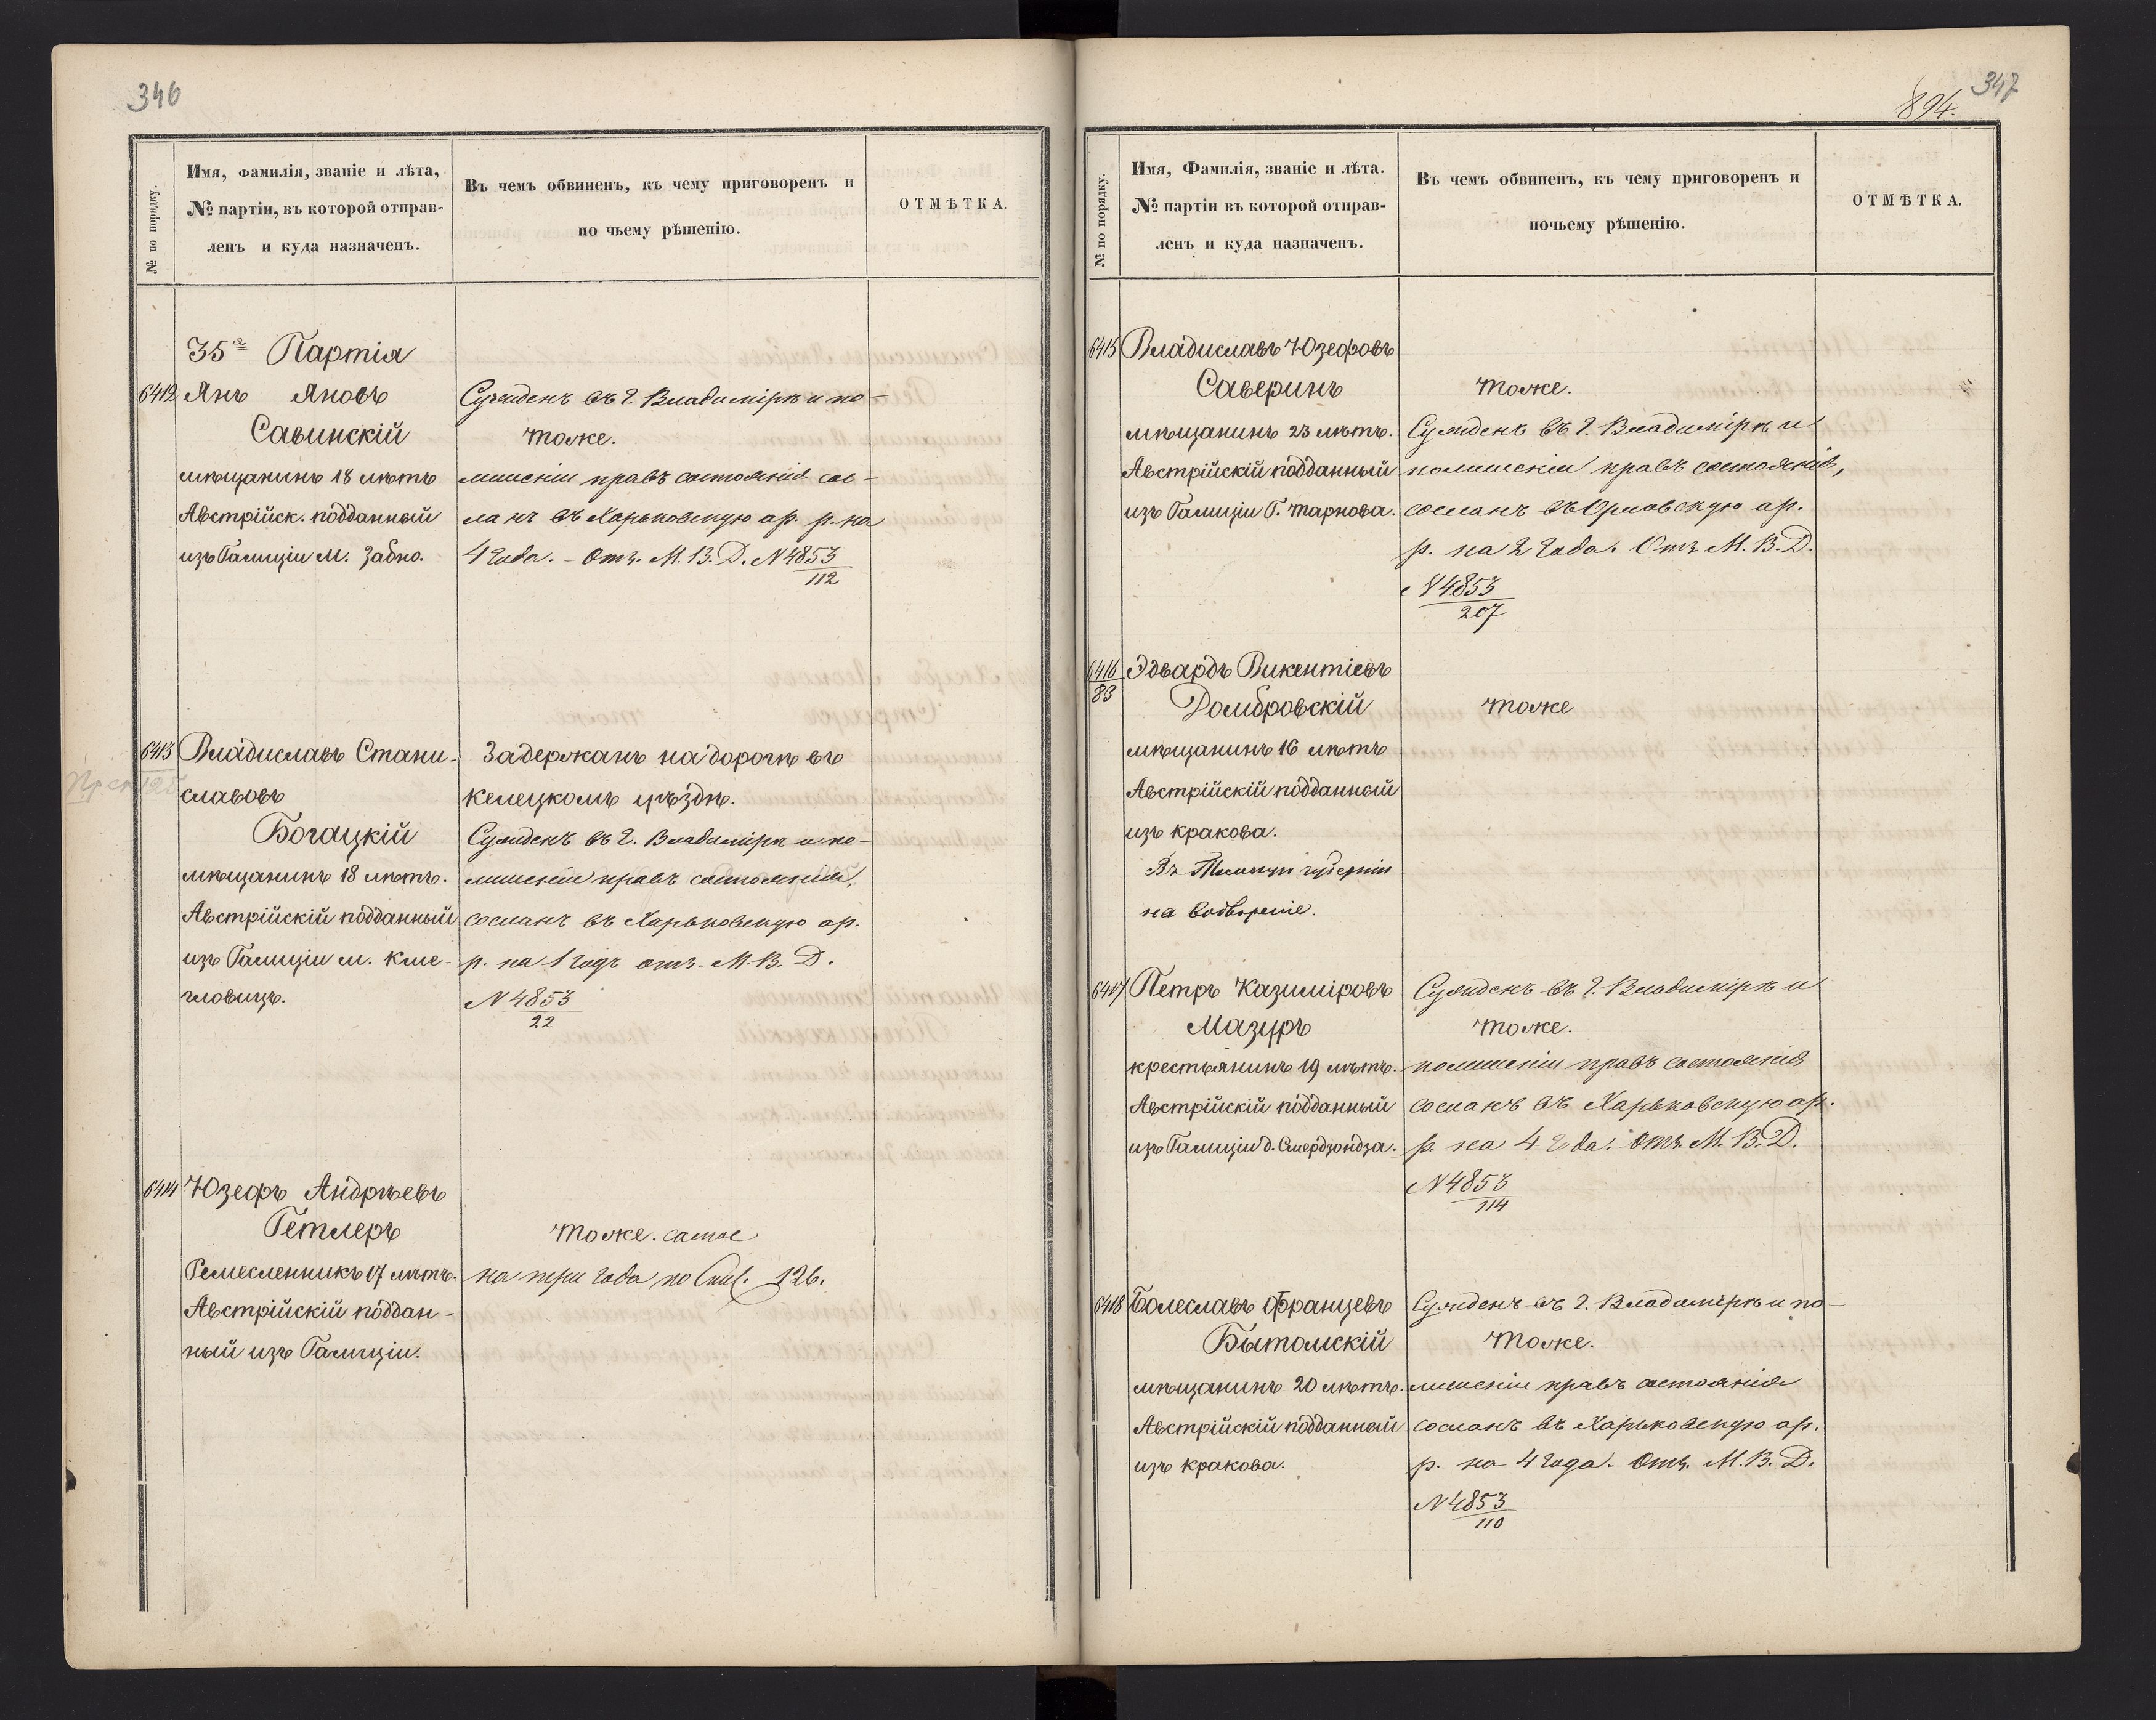 346
№ по порядку.
Имя, фамилія, званіе и лѣта,
№ партіи, въ которой отправ-
ленъ и куда назначенъ.
Въ чемъ обвиненъ, къ чему приговоренъ и
по чьему рѣшенію.
ОТМѢТКА.
35я Партія
6412 Янъ Яновъ
Савинскій
мѣщанинъ 18 лѣтъ
Австрійск. подданный
изъ Галиціи м. Забно.
Сужденъ въ г. Владимірѣ и по-
тоже.
лишеніи правъ состоянія сос-
ланъ въ Харьковскую ар. р. на
4 года. - Отн. М. В. Д. N 4853
112
6413 Владиславъ Стани-
славовъ
Богацкій
мѣщанинъ 18 лѣтъ.
Австрійскій подданный
изъ Галиціи м. Кше-
чловицъ.
Задержанъ на дорогѣ въ
келецкомъ уѣздѣ.
Сужденъ въ г. Владимірѣ и по-
лишеніи правъ состоянія,
сосланъ въ Харьковскую ар.
р. на 1 годъ отн. М. В. Д.
N 4853
22
6414 Юзефъ Андрѣевъ
Гетлеръ
Ремесленникъ 17 лѣтъ.
Австрійскій поддан-
ный изъ Галиціи.
тоже. самое
на три года по Спис. 126.
347
894.
№ по порядку.
Имя, Фамилія, званіе и лѣта.
№ партіи въ которой отправ-
ленъ и куда назначенъ.
Въ чемъ обвиненъ, къ чему приговоренъ и
почьему рѣшенію.
ОТМѢТКА.
6415 Владиславъ Юзефовъ
Саверинъ
мѣщанинъ 23 лѣтъ.
Австрійскій подданный
изъ Галиціи Г. Тарнова.
тоже.
Сужденъ въ г. Владимірѣ и
полишеніи правъ состоянія,
сосланъ въ Орловскую ар.
р. на 2 года. Отн. М. В. Д.
N 4853
207
6416
83
Эдвардъ Викентіевъ
Домбровскій
мѣщанинъ 16 лѣтъ
Австрійскій подданный
изъ Кракова.
Въ губерніи
на водвореніе.
тоже
6417 Петръ Казиміровъ
Мазуръ
крестьянинъ 19 лѣтъ.
Австрійскій подданный
изъ Галиціи д. Смердзондза.
Сужденъ въ г. Владимірѣ и
тоже.
полишеніи правъ состоянія
сосланъ въ Харьковскую ар.
р. на 4 года. Отн. М. В. Д.
N 4853
114
6418 Болеславъ Францевъ
Бытомскій
мѣщанинъ 20 лѣтъ.
Австрійскій подданный
изъ Кракова.
Сужденъ въ г. Владимірѣ и по-
тоже.
лишеніи правъ состоянія
сосланъ въ Харьковскую ар.
р. на 4 года. Отн. М. В. Д.
N 4853
110